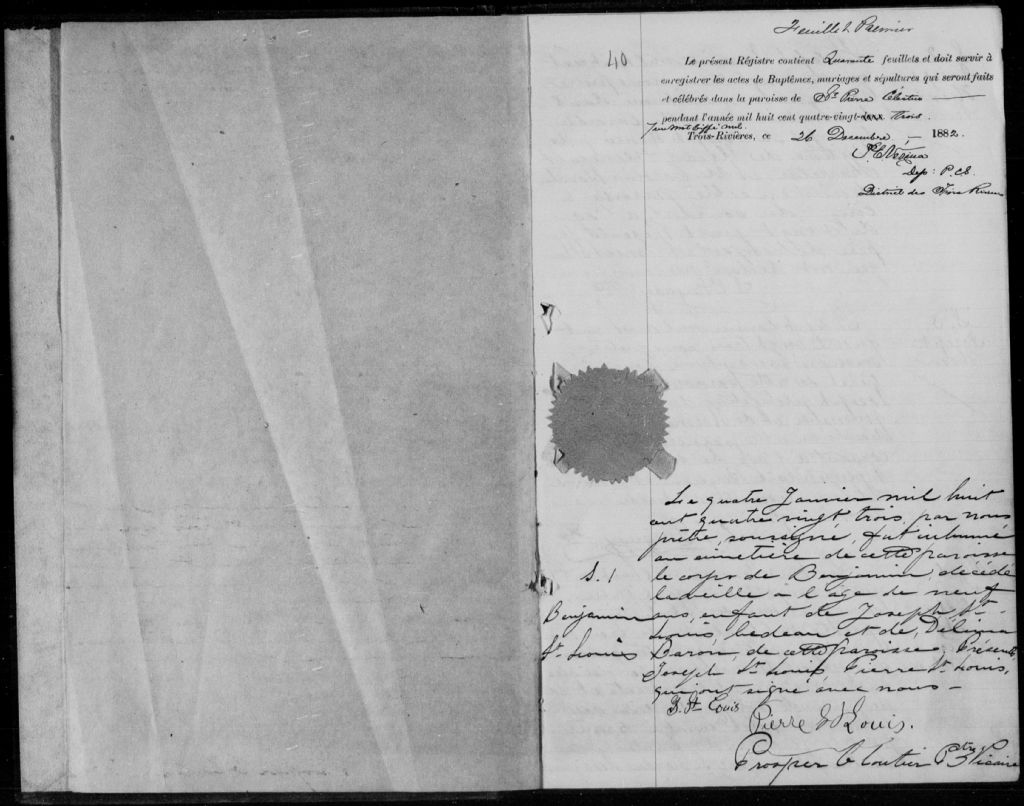 Feuillet Premier
40
Le présent Régistre contient Quarante feuillets et doit servir à
enregistrer les actes de Baptêmes, mariages et sépultures qui seront faits
et célébrés dans la paroisse de St Pierre Célestin
pendant l'année mil huit cent quatre-vingt- trois.
mot biffé nul.
Trois-Rivières, ce 26 Decembre 1882.
Dep: P.C.S.
District des Trois Rivieres
Le quatre Janvier mil huit
cent quatre vingt trois, par nous
prêtre, soussigné, fut inhumé
au cimetière de cette paroisse
S. 1
le corps de Benjamin, décédé
la veille à l'age de neuf
Benjamin
ans, enfant de Joseph St.
Louis, bedeau et de Délima
St. Louis
Baron, de cette paroisse, Présents
Joseph St. Louis, Pierre St. Louis,
qui ont signé avec nous –
J. St Louis
Pierre St Louis.
Prosper Cloutier Ptre Vicaire